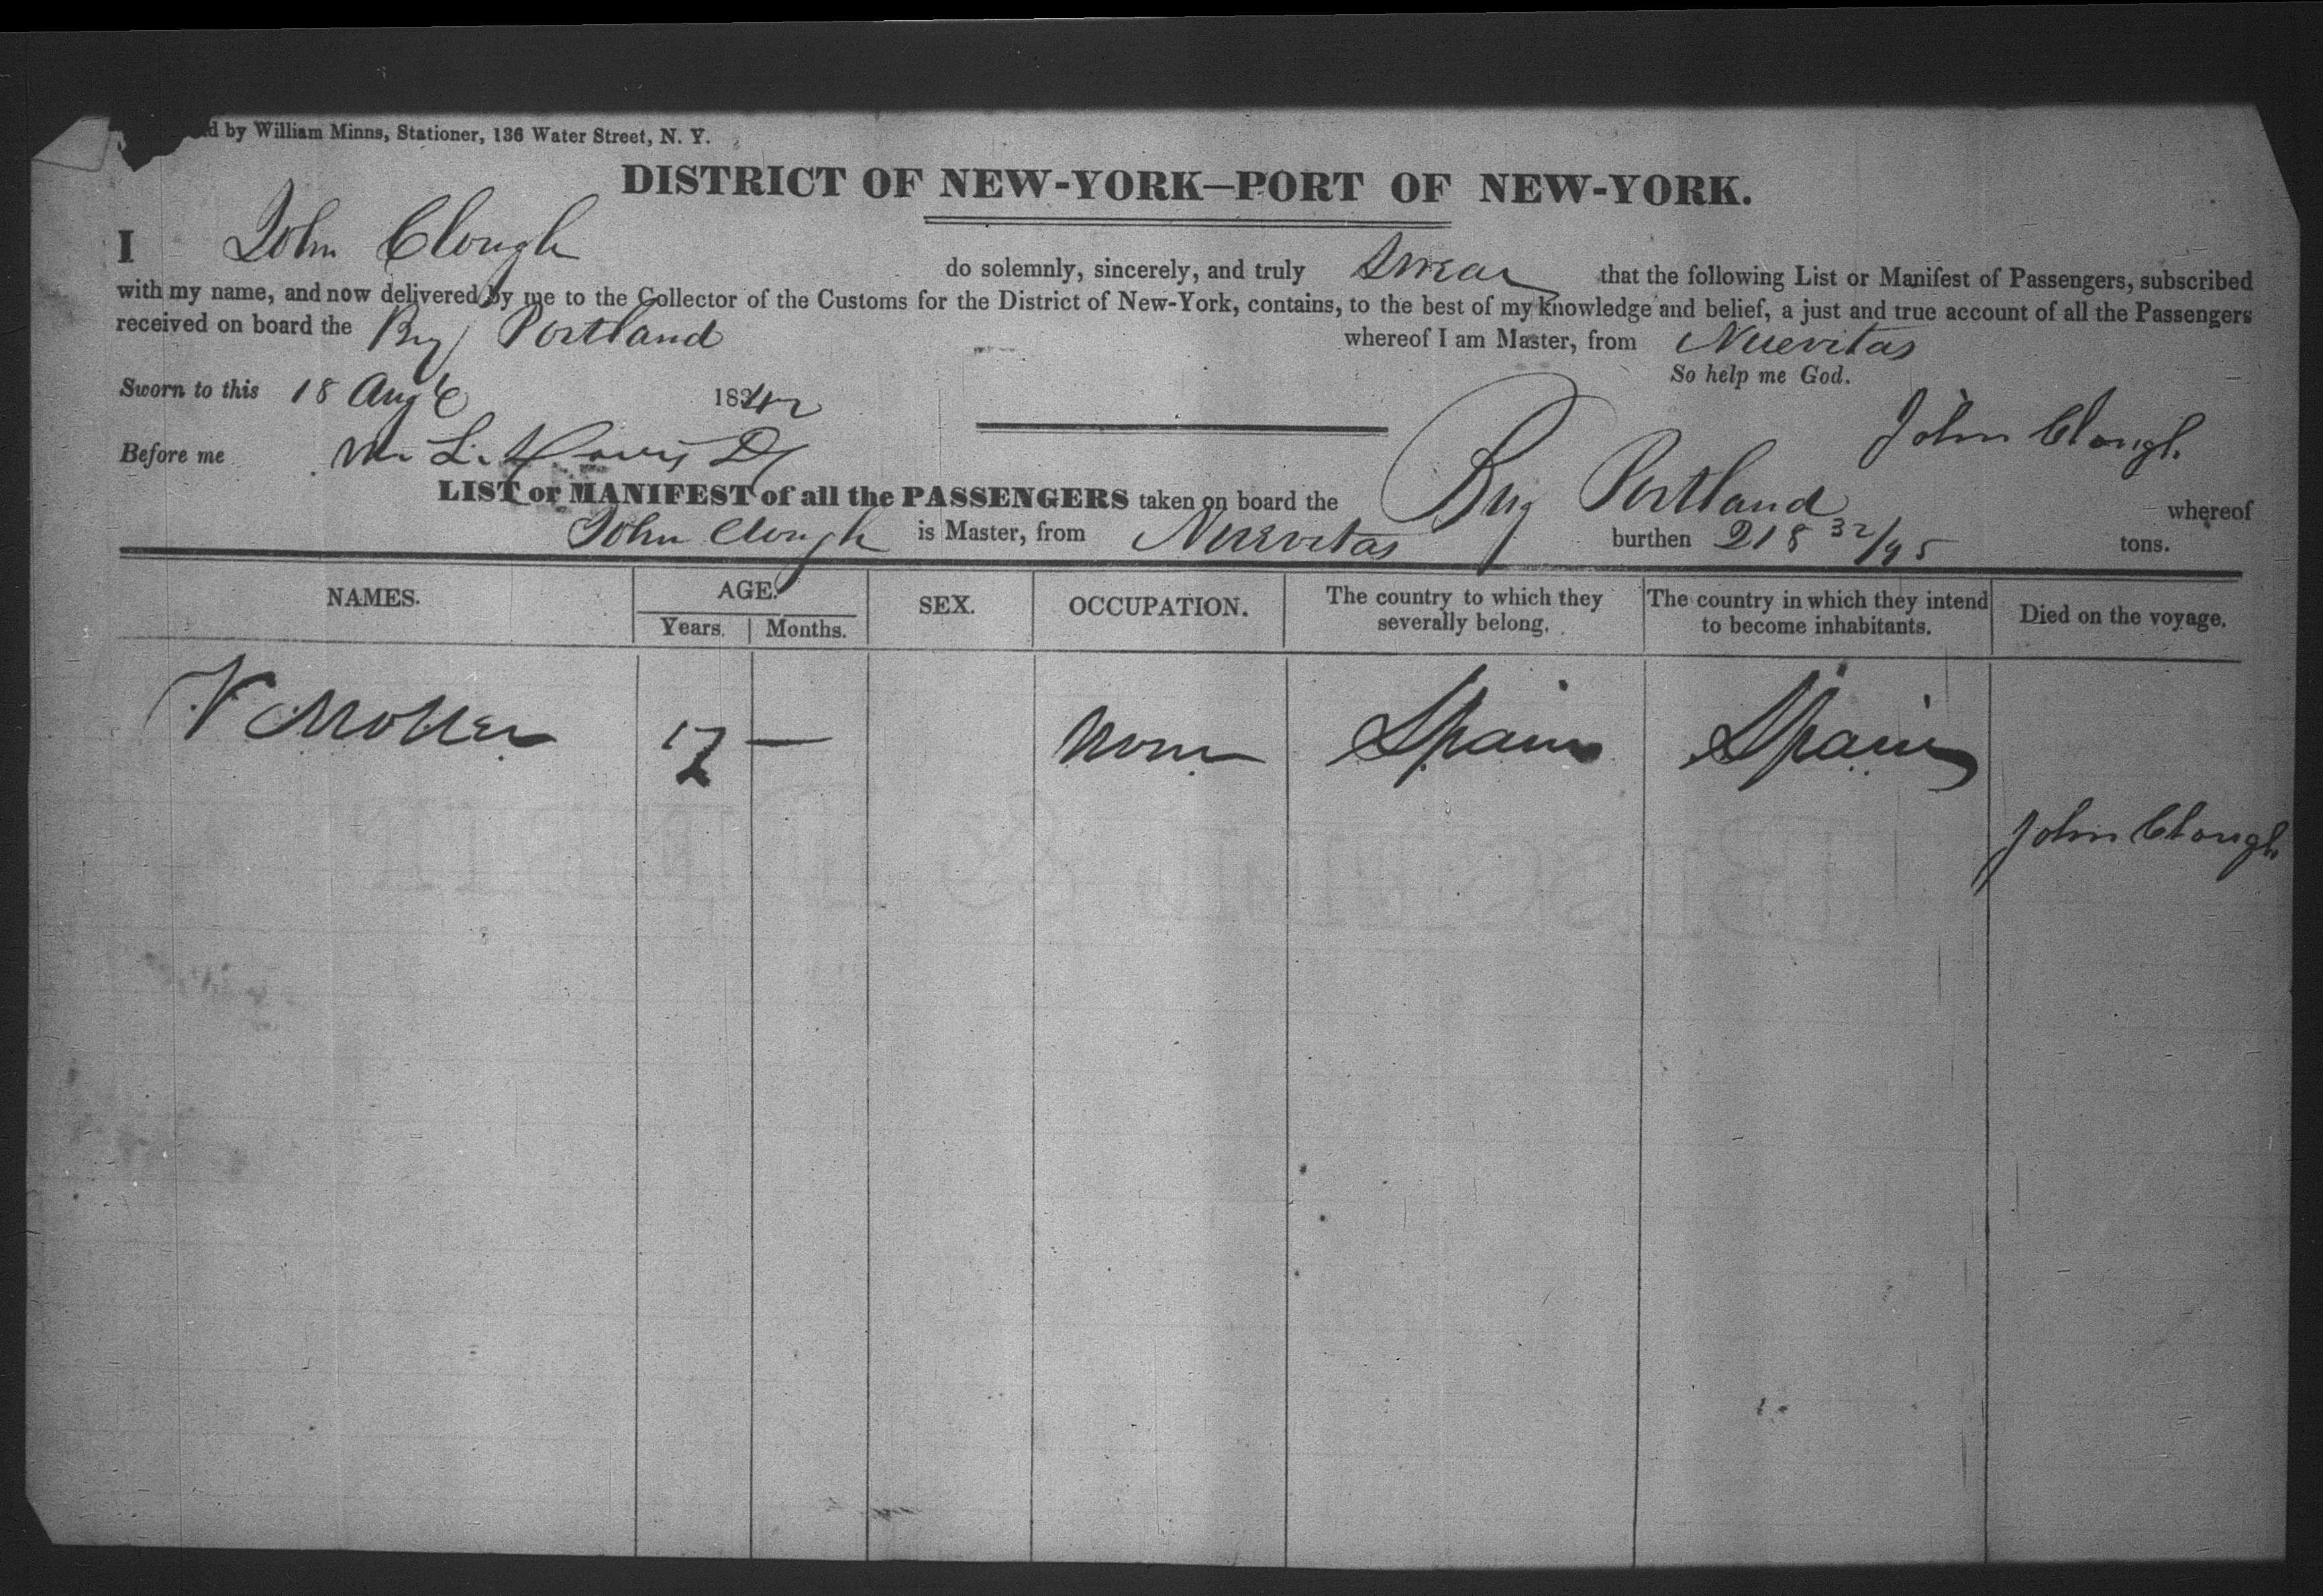 d by William Minns, Stationer, 136 Water Street, N. Y.
DISTRICT OF NEW-YORK—PORT OF NEW-YORK.
I John Clough do solemnly, sincerely, and truly Swear that the following List or Manifest of Passengers, subscribed
with my name, and now delivered by me to the Collector of the Customs for the District of New-York, contains, to the best of my knowledge and belief, a just and true account of all the Passengers
received on board the Brig Portland whereof I am Master, from Nuevitas
So help me God.
Sworn to this 18 Aug 1842
John Clough
Before me
LIST or MANIFEST of all the PASSENGERS taken on board the Brig Portland whereof
John Clough is Master, from Nuevitas burthen 218 32/95 tons.
NAMES. AGE. SEX. OCCUPATION. The country to which they severally belong. The country in which they intend to become inhabitants. Died on the voyage.
Years. Months.
V — None Spain Spain
John Clough